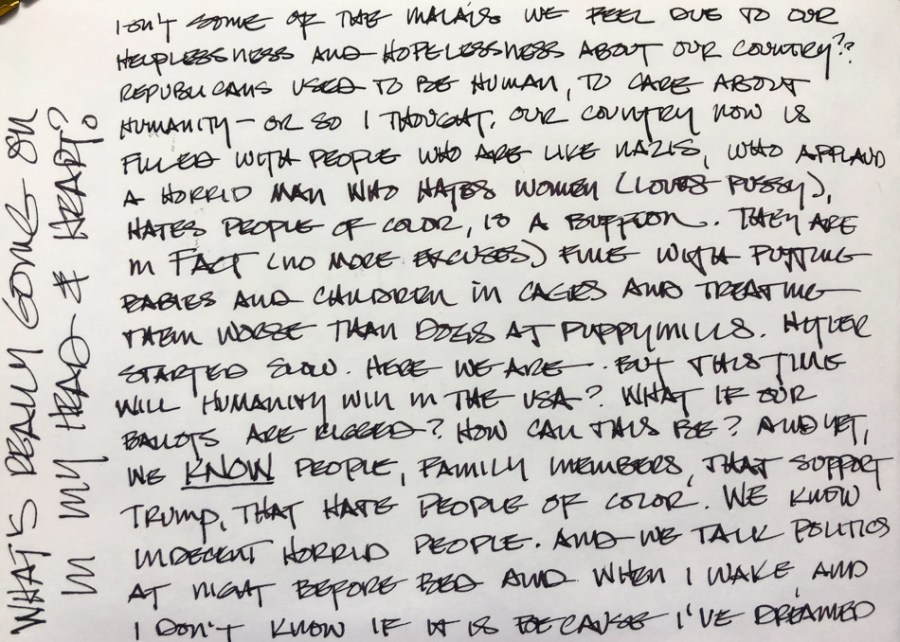 WHAT'S REALLY GOING ON
IN MY HEAD & HEART?
ISN'T SOME OF THE MALAISE WE FEEL DUE TO OUR
HELPLESSNESS AND HOPELESSNESS ABOUT OUR COUNTRY??
REPUBLICANS USED TO BE HUMAN, TO CARE ABOUT
HUMANITY – OR SO I THOUGHT. OUR COUNTRY NOW IS
FILLED WITH PEOPLE WHO ARE LIKE NAZIS, WHO APPLAUD
A HORRID MAN WHO HATES WOMEN (LOVES PUSSY),
HATES PEOPLE OF COLOR, IS A BUFFOON. THEY ARE
IN FACT (NO MORE EXCUSES) FINE WITH PUTTING
BABIES AND CHILDREN IN CAGES AND TREATING
THEM WORSE THAN DOGS AT PUPPYMILLS. HITLER
STARTED SLOW. HERE WE ARE. BUT THIS TIME
WILL HUMANITY WIN IN THE USA? WHAT IF OUR
BALLOTS ARE RIGGED? HOW CAN THIS BE? AND YET,
WE KNOW PEOPLE, FAMILY MEMBERS, THAT SUPPORT
TRUMP, THAT HATE PEOPLE OF COLOR. WE KNOW
INDECENT HORRID PEOPLE. AND WE TALK POLITICS
AT NIGHT BEFORE BED AND WHEN I WAKE AND
I DON'T KNOW IF IT IS BECAUSE I'VE DREAMED